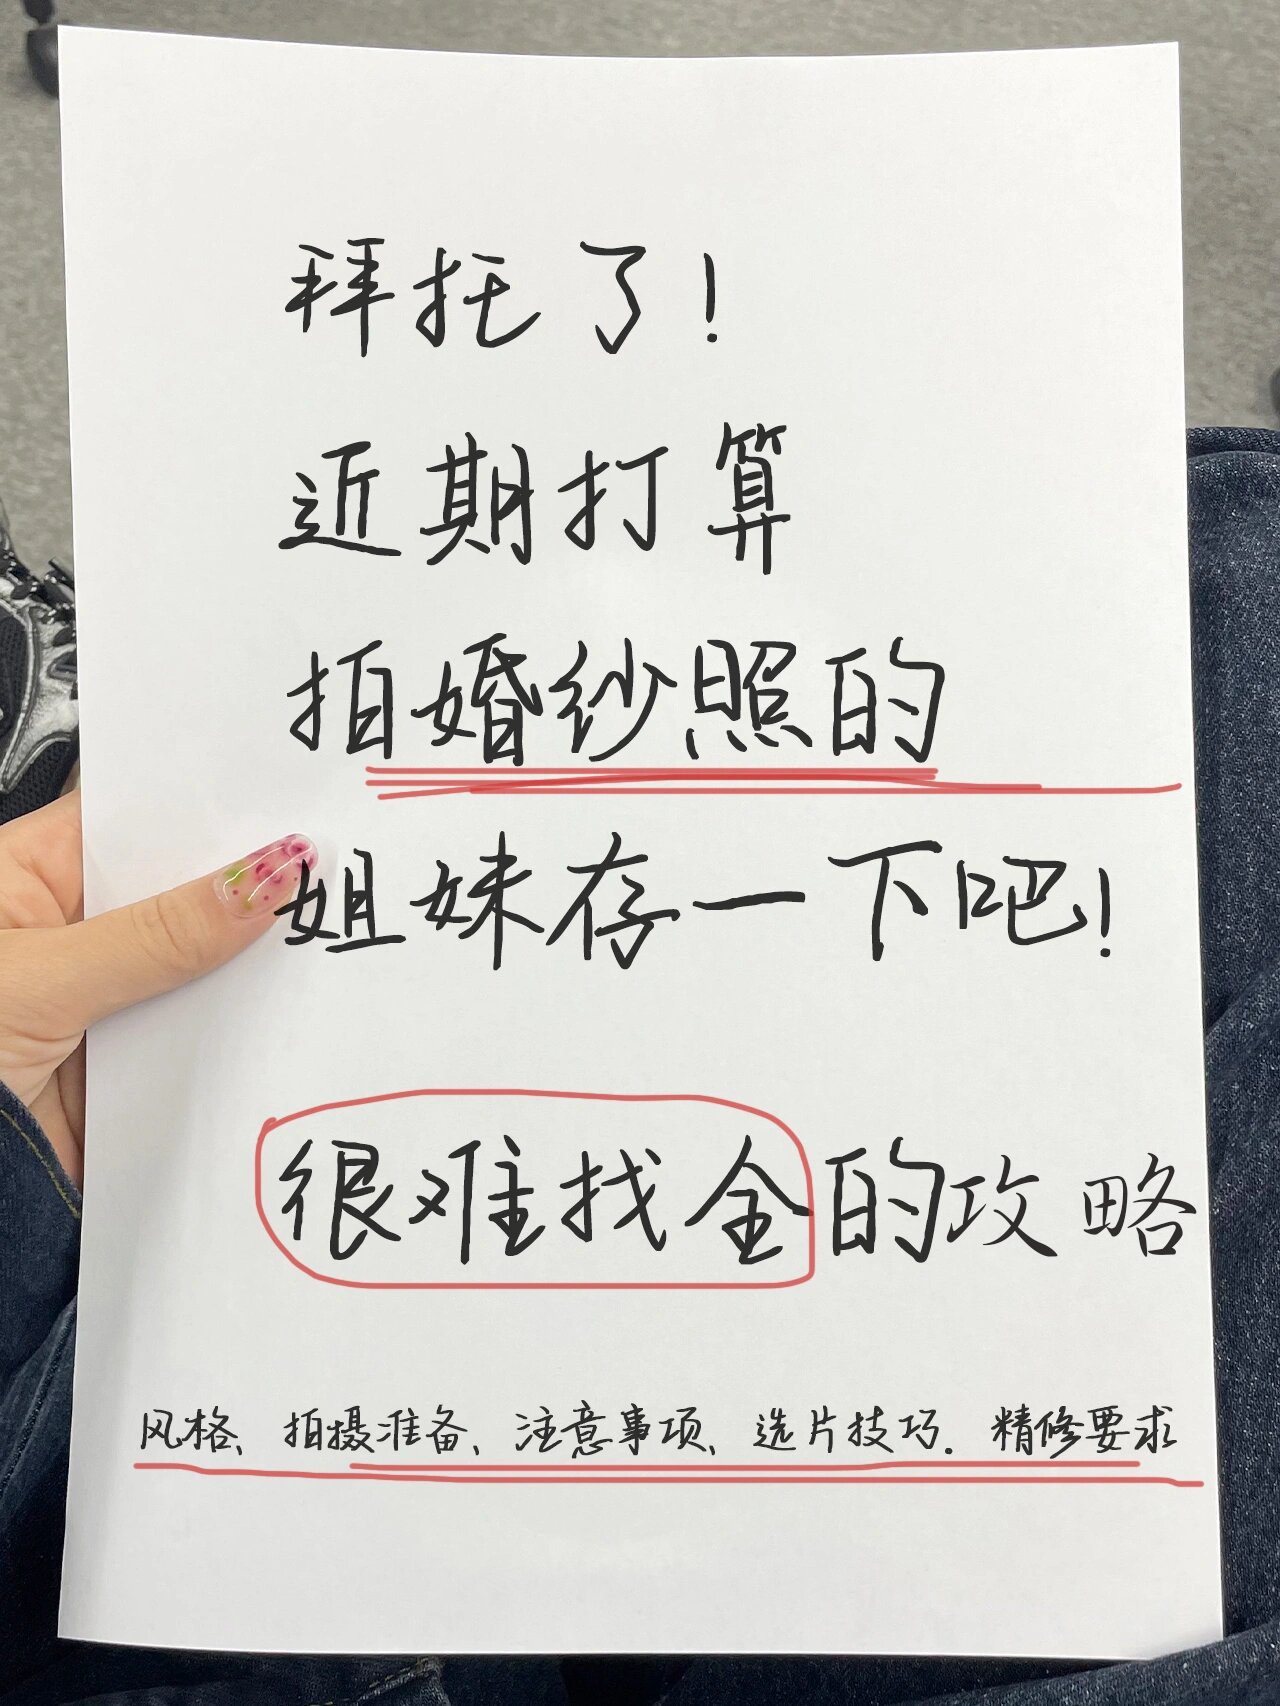 拜托了！
近期打算
拍婚纱照的
姐妹存一下吧！
很难找全的攻略
风格、拍摄准备、注意事项、选片技巧．精修要求